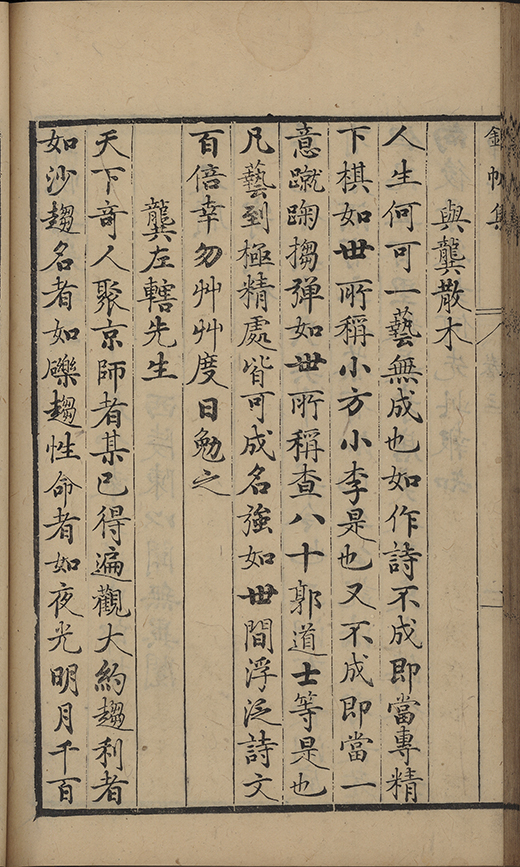 與龔散木
人生何可一藝無成也如作詩不成即當專精
下棋如世所稱小方小李是也又不成即當一
意蹴踘搊弹如世所稱查八十郭道士等是也
凡藝到極精處皆可成名強如世間浮泛詩文
百倍幸勿艸艸度日勉之
龔左轄先生
天下奇人聚京師者某已得遍觀大約趨利者
如沙趨名者如礫趨性命者如夜光明月千百